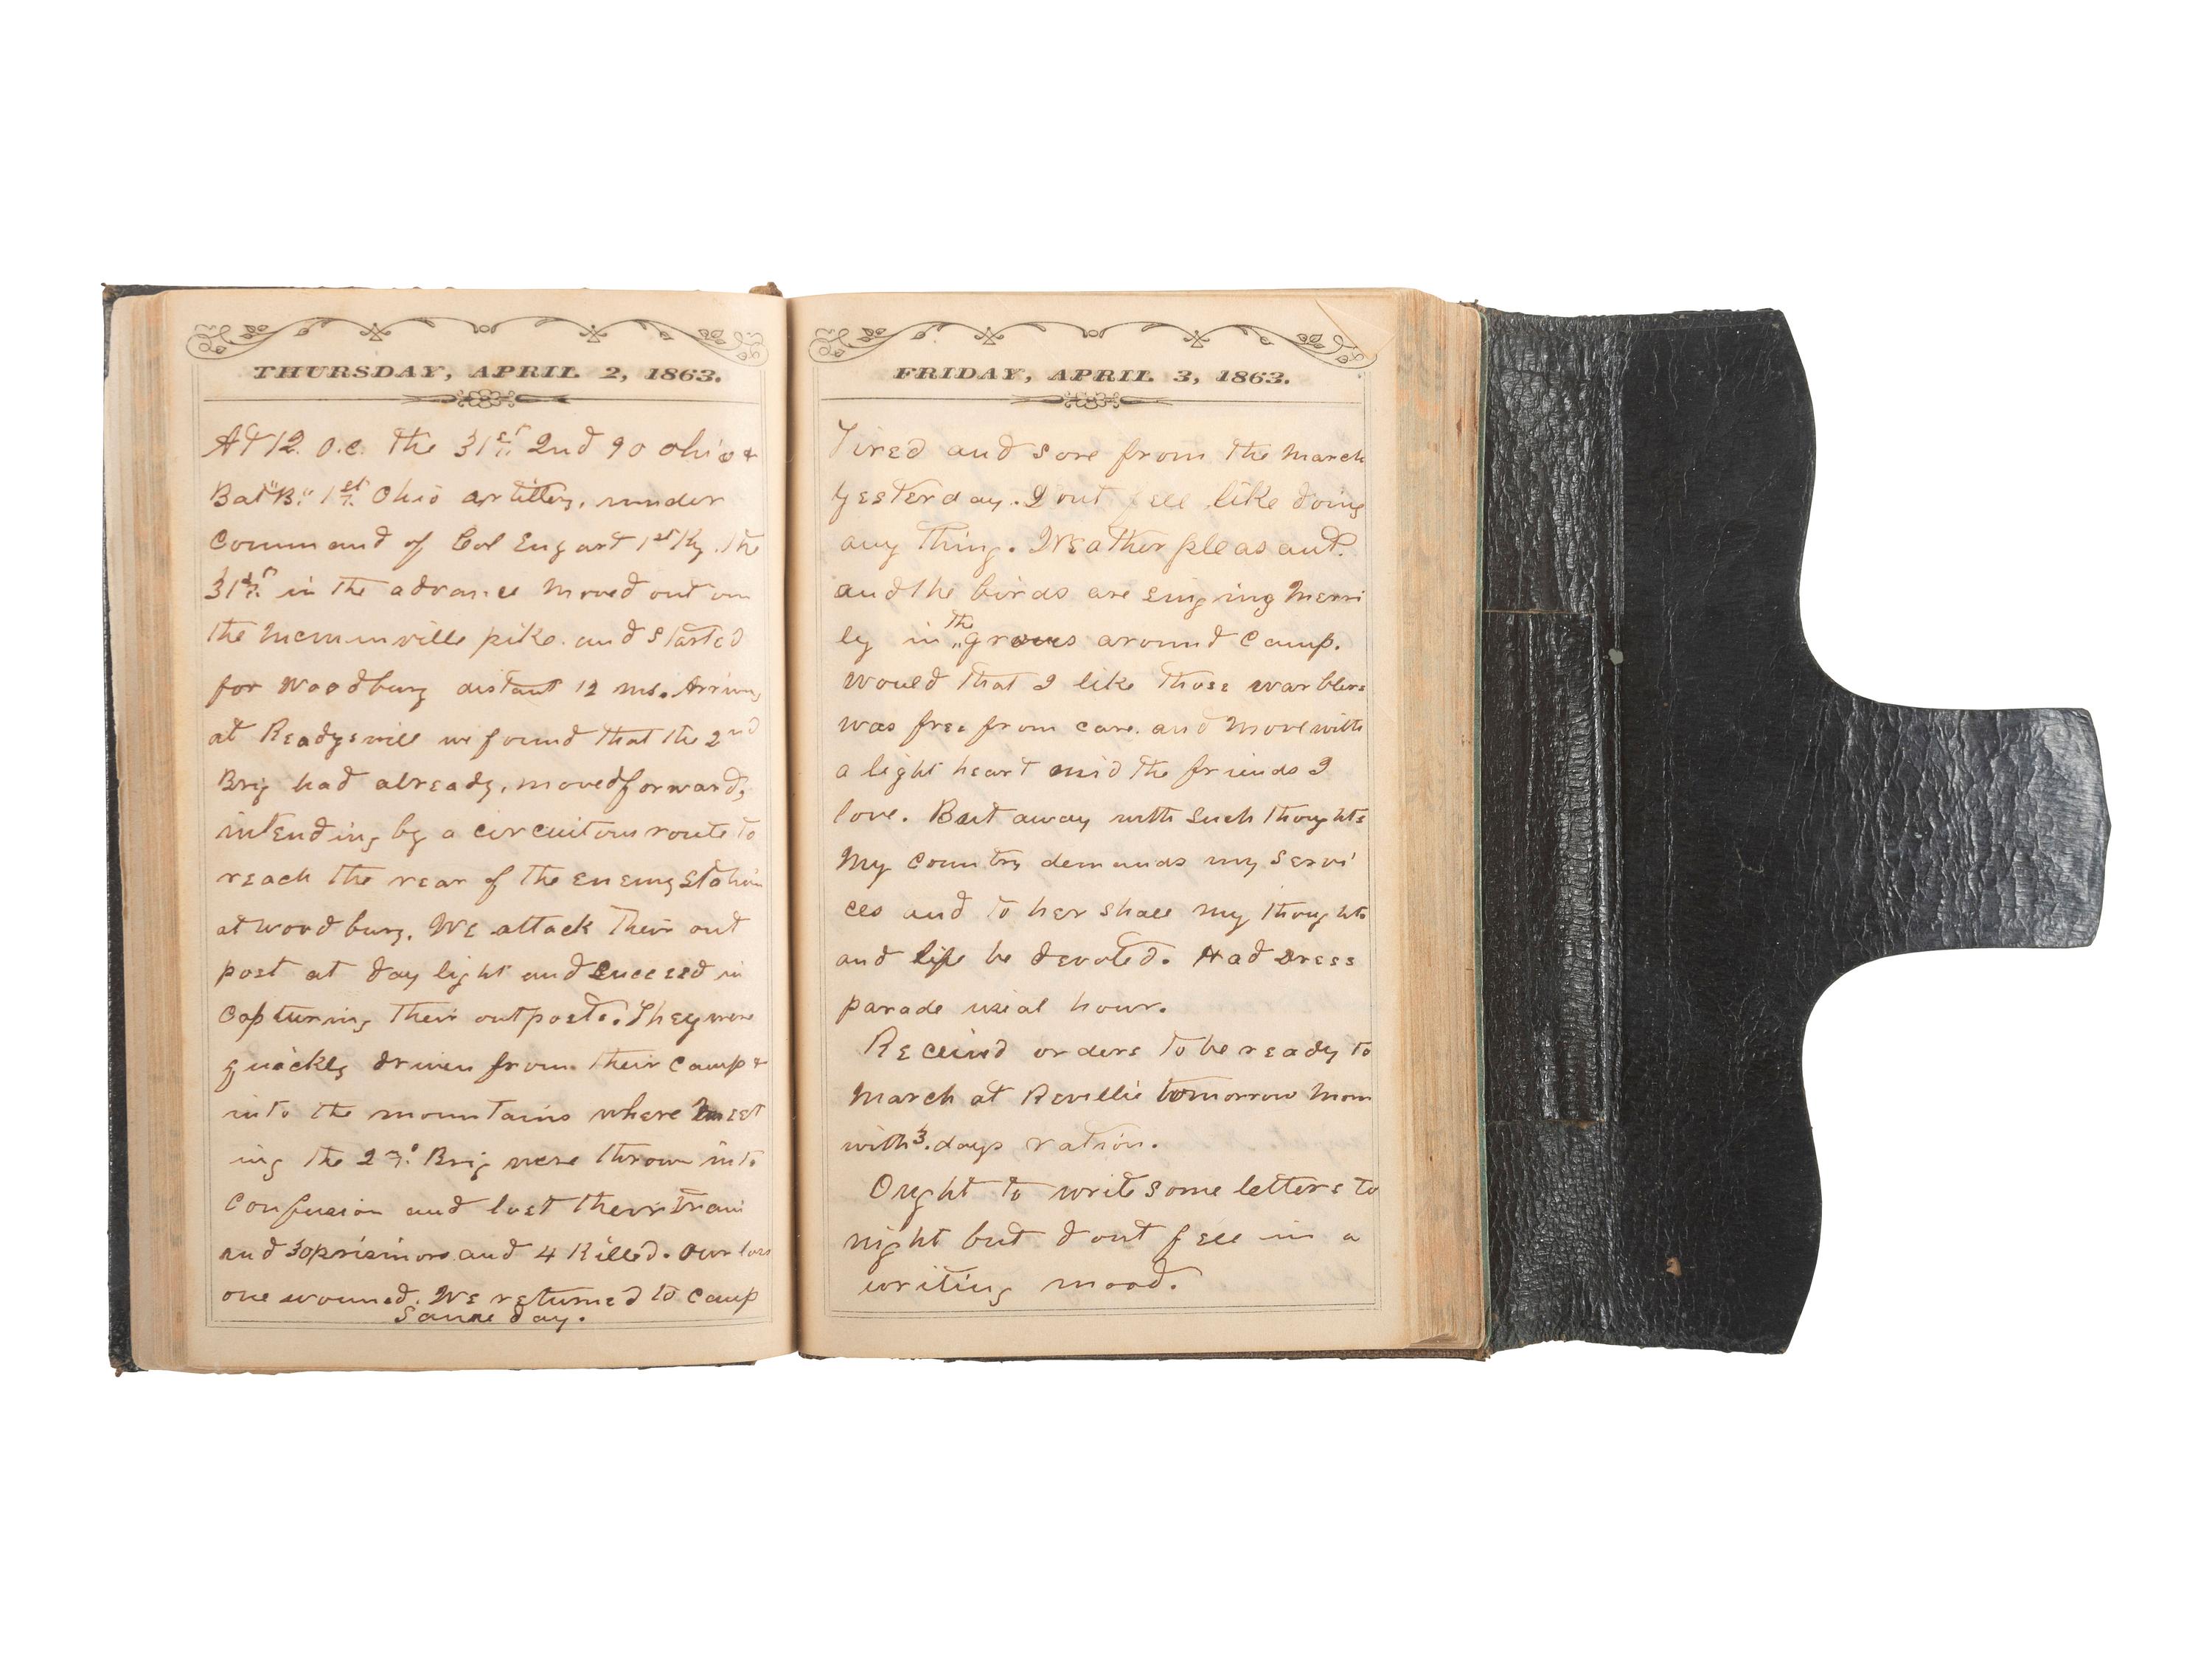 THURSDAY, APRIL 2, 1863.
At 12. O.C. The 31st 2nd 90 Ohio &
Bat "B." 1st Ohio artillery, under
Command of Col Enyart 1st Ky. The
31st in the advance moved out on
the Mcminville pike. and Started
for Woodbury distant 12 ms. Arriving
at Readysville we found that the 2nd
Brig had already, moved forward,
intending by a circuitous route to
reach the rear of the enemy
at Woodbury. We attack Their out
post at day light and Succeed in
Capturing Their outposts. They were
quickly driven from their camp &
into the mountains where meet
ing the 2nd Brig were thrown into
Confusion and lost their train
and 30 prisinors and 4 Killed. Our loss
one wound. We returned to camp
Same day.
FRIDAY, APRIL 3, 1863.
Tired and sore from the march
yesterday. Dont fell like doing
any thing. Weather pleasant.
and the birds are singing merri
ly in The groves around camp.
Would that I like those warblers
was free from care. and move with
a light heart mid the friends I
love. But away with such thoughts
My Country demands my servi
ces and to her shall my thoughts
and life be devoted. Had Dress
parade usial hour.
Receivd orders to be ready to
march at Revillie tomorrow morn
with 3. days ration.
Ought to write some letters to
night but dont fell in a
writing mood.